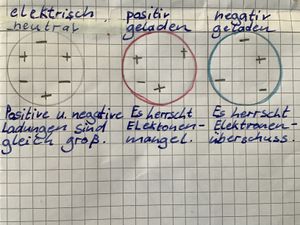 elektrisch
neutral
positiv
geladen
negativ
geladen
Positive u. negative
Ladungen sind
gleich groß.
Es herrscht
Elektonen-
mangel.
Es herrscht
Elektronen-
überschuss.